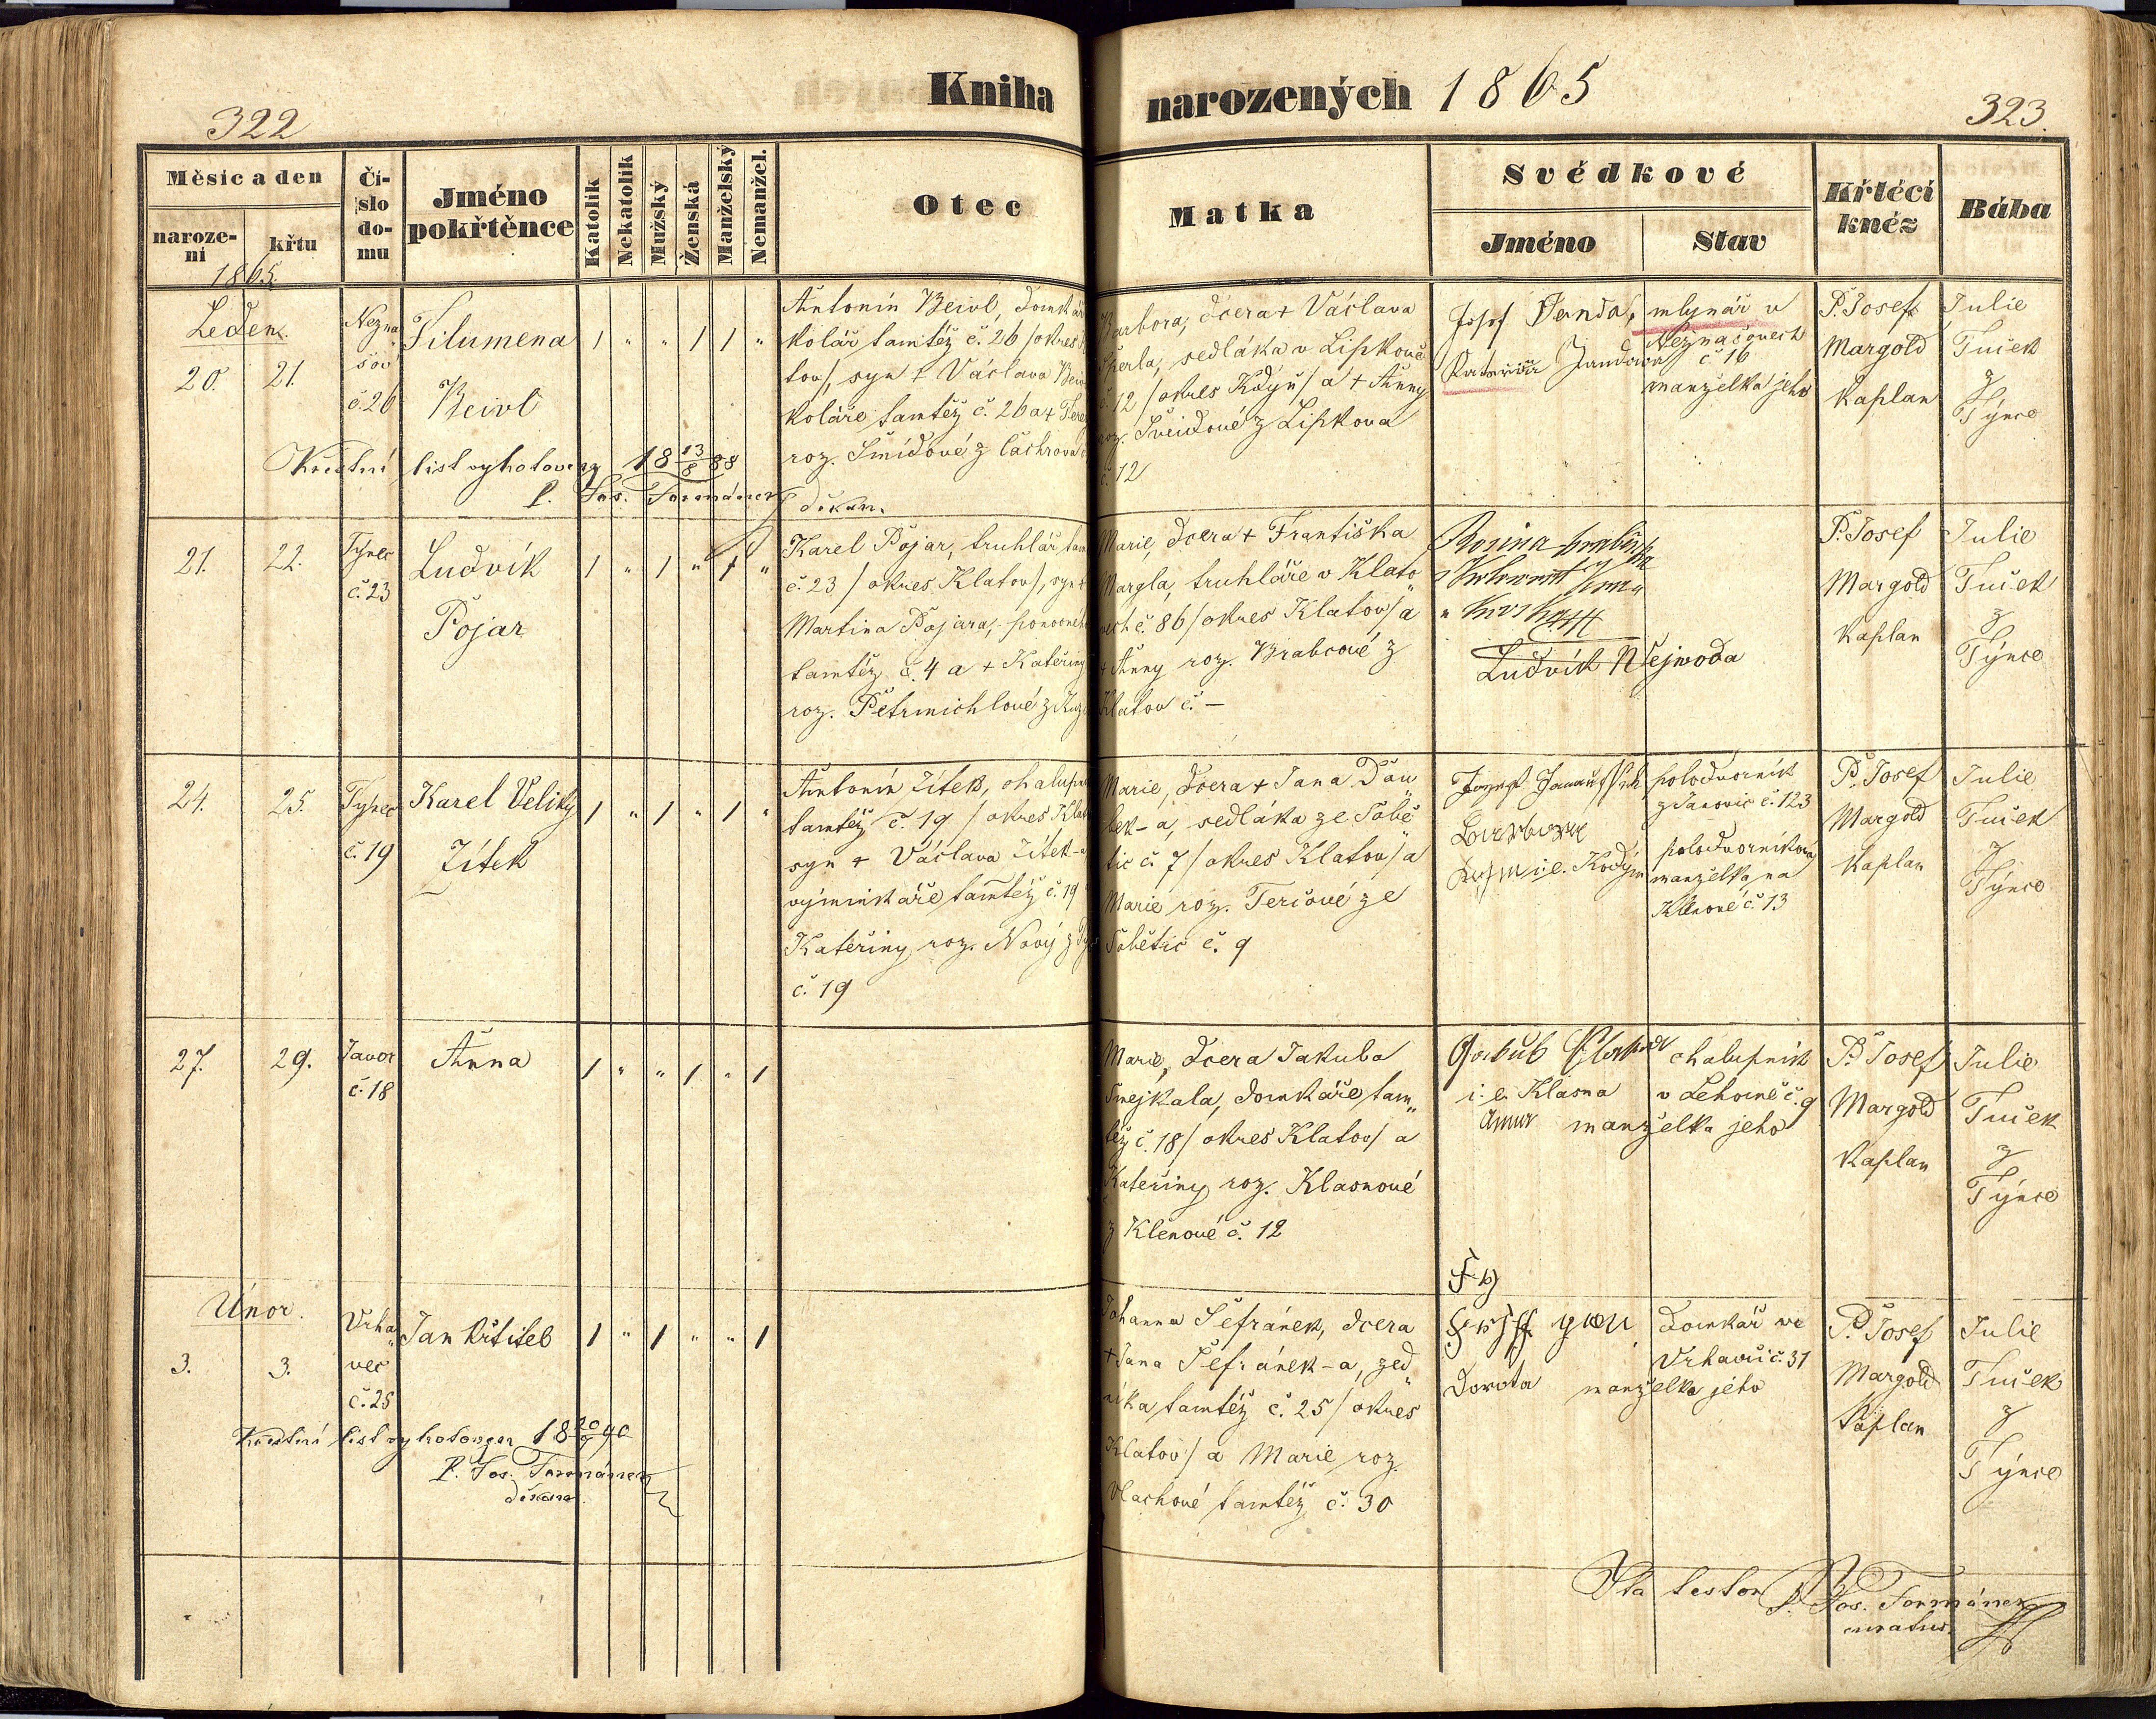 322
Kniha
narozených 1865
323.
Měsíc a den
naroze-
ní
křtu
1865.
Čí-
slo
do-
mu
Jméno
pokřtěnce
Katolík
Nekatolík
Mužský
Ženská
Manželský
Nemanžel.
Otec
Matka
Svědkové
Jméno
Stav
Křtěcí
kněz
Bába
Leden.
20. 21.
Nezna
šov
č. 26
Filumena
Beivl
1 " " 1 1 "
Antonín Beivl, domkář
kolář tamtéž č. 26 /okres
tov/, syn + Václava
koláře tamtéž č. 26 a +
roz. Šmídové z Čachrova
Barbora, dcera + Václava
Šperla, sedláka v Lipkově
č. 12 /okres Kdyň/ a + Anny
roz. Šveidové z Lipkova
č. 12
Josef Janda, mlynář v
Neznašovech
č 16
Kateřina Jandova
manželka jeho
P. Josef
Margold
Kaplan
Julie
Tuček
z
Týnce
Křestní list vyhotoven 18 13/8 88
P. Jos. Formánek
děkan.
21. 22.
Týnec
č. 23
Ludvík
Pojar
1 " 1 " 1 "
Karel Pojar, truhlář tam
č. 23 /okres Klatov/, syn +
Martina Pojara, ponocného
tamtéž č. 4 a + Kateřiny
roz. Petrmichlové z
Marie, dcera + Františka
Margla, truhláře v Klato"
vech č. 86 /okres Klatov/ a
+ Anny roz. Brabcové z
Klatov č. –
Rosina
Ludvík Nejwoda
P. Josef
Margold
Kaplan
Julie
Tuček
z
Týnce
24. 25.
Týnec
č. 19
Karel Veliký
Zítek
1 " 1 " 1 "
Antonín Zítek,
tamtéž č. 19 /okres
syn + Václava Zítek-a
výminkáře tamtéž č. 19
Kateřiny roz. Nový z
č. 19
Marie, dcera + Jana Dau"
bek-a, sedláka ze Sobě
tic č. 7 /okres Klatov/ a
Marie roz. Terčové ze
Sobětic č. 9
polodvorník
z Janovic č. 123
Barbora
i.e. Kodým
polodvorníkova
manželka na
Klenové č. 13
P. Josef
Margold
Kaplan
Julie
Tuček
z
Týnce
27. 29.
Javor
č. 18
Anna
1 " " 1 " 1
Marie, dcera Jakuba
Smejkala, domkáře tam"
též č. 18 /okres Klatov/ a
Kateřiny roz. Klasnové
z Klenové č. 12
Jakub
i. e. Klasna
chalupník
v Lehomě č. 9
Anna manželka jeho
P. Josef
Margold
Kaplan
Julie
Tuček
z
Týnce
Únor.
3. 3.
Vrha"
vec
č. 25
Jan Křtitel
1 " 1 " " 1
Johanna Šefránek, dcera
+ Jana Šefránek-a, zed"
níka tamtéž č. 25 /okres
Klatov/ a Marie roz.
Vlachové tamtéž č. 30
domkář ve
Vrhavči č. 31
Dorota manželka jeho
P. Josef
Margold
Kaplan
Julie
Tuček
z
Týnce
Křestní list vyhotoven 18 20/9 90
P. Jos. Formánek
děkan.
Ita testor P. Jos. Formánek
curatus.